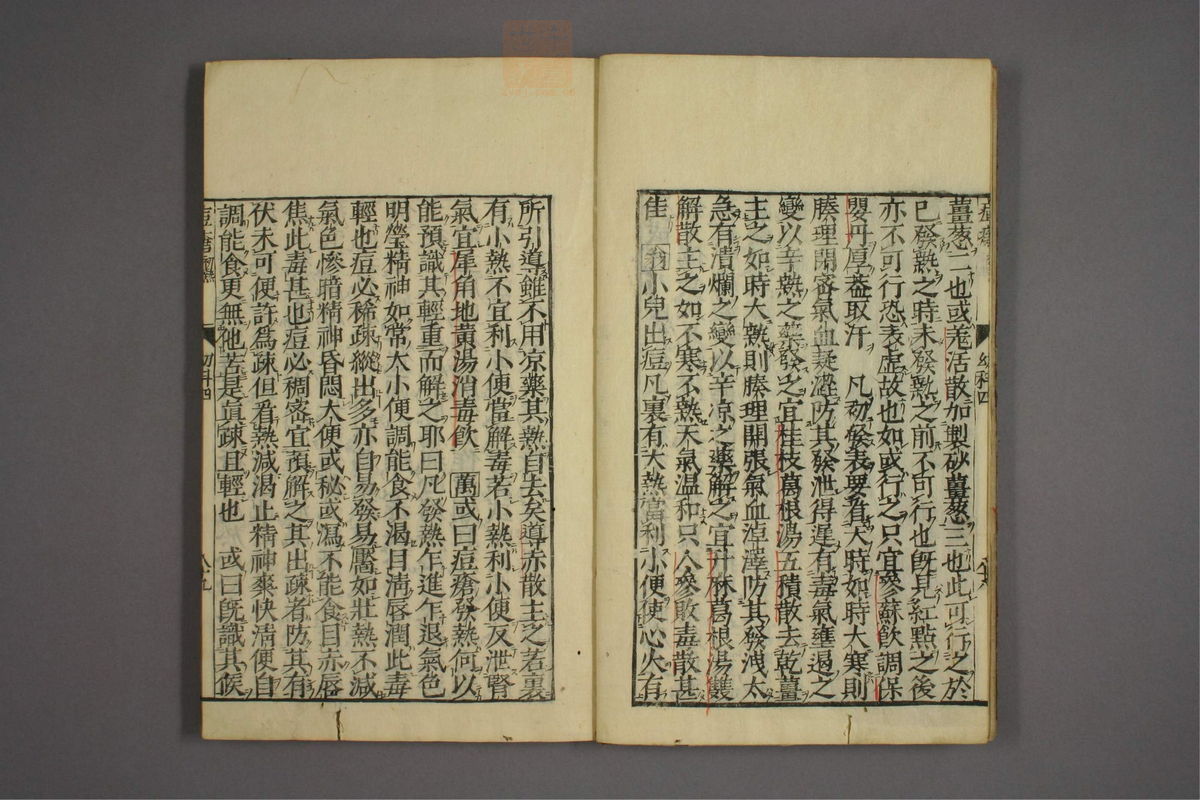 薑葱二也或羌活散加製砂薑葱三也此可行之於
已發熱之時未發熱之前不可行也既見紅點之後
亦不可行恐表虛故也如或行之只宜參蘇飲調保
嬰丹厚蓋取汗　凡初發表要看大時如時大寒則
腠理閉密氣血凝澀防其發泄得遲有毒氣壅遏之
變以辛熱之藥發之宜桂枝葛根湯五積散去乾薑
主之如時大熱則腠理開張氣血淖澤防其發洩太
急有潰爛之變以辛凉之藥解之宜升麻葛根湯雙
解散主之如不寒不熱天氣温和只人參敗毒散甚
佳　小兒出痘凡裏有大熱當利小便使心火有
幼科四
所引導雖不用凉藥其熱自去矣導赤散主之若裏
有小熱不宜利小便當解毒若小熱利小便反泄腎
氣宜犀角地黄湯消毒飲　萬或曰痘瘡發熱何以
能預識其輕重而解之耶曰凡發熱乍進乍退氣色
明瑩精神如常大小便調能食不渴目淸唇潤此毒
輕也痘必稀疎縱出多亦自易發易靨如壯熱不減
氣色慘暗精神昏悶大便或秘或瀉不能食目赤唇
焦此毒甚也痘必稠密宜預解之其出疎者防其有
伏未可便許爲疎但看熱減渴止精神爽快淸便自
調能食更無他苦是眞疎且輕也　或曰既識其候
幼科四